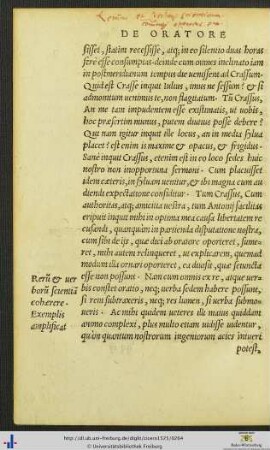 DE ORATORE
sisset, statim recessisse, atq; in eo silentio duas horas
ferè esse consumptas: deinde cum omnes inclinato iam
in pomeridianum tempus die venissent ad Crassum.
Quid est Crasse inquit Iulius, imus ne sessum? etsi
admonitum venimus te, non flagitatum. Tũ Crassus,
An me tam impudentem esse existimatis, ut vobis,
hoc præsertim munus, putem diutius posse debere?
Qui nam igitur inquit ille locus, an in media sylva
placet? est enim is maxime & opacus, & frigidus.
Sane inquit Crassus, etenim est in eo loco sedes huic
nostro non inopportuna sermoni. Cum placuisset
idem cæteris, in sylvam venitur, & ibi magna cum au
diendi expectatione considitur. Tum Crassus, Cum
authoritas, atq; amicitia vestra, tum Antonij facilitas
eripuit inquit mihi in optima mea causa libertatem re
cusandi, quanquam in partienda disputatione nostra,
cum sibi de ijs, quæ dici ab oratore oporteret, sume=
ret, mihi autem relinqueret, ut explicarem, quemad
modum illa ornari oporteret, ea divisit, quæ seiuncta
esse non possunt. Nam cum omnis ex re, atque ver=
bis constet oratio, neq; verba sedem habere possunt,
si rem subtraxeris, neq; res lumen, si verba submo=
veris. Ac mihi quidem veteres illi maius quiddam
animo complexi, plus multo etiam vidisse uidentur,
quàm quantum nostrorum ingeniorum acies intueri
potest,
Rerũ & ver
borũ scientiã
cohærere.
Exemplis
amplificat
http://dl.ub.uni-freiburg.de/diglit/cicero1521/0294
© Universitätsbibliothek Freiburg